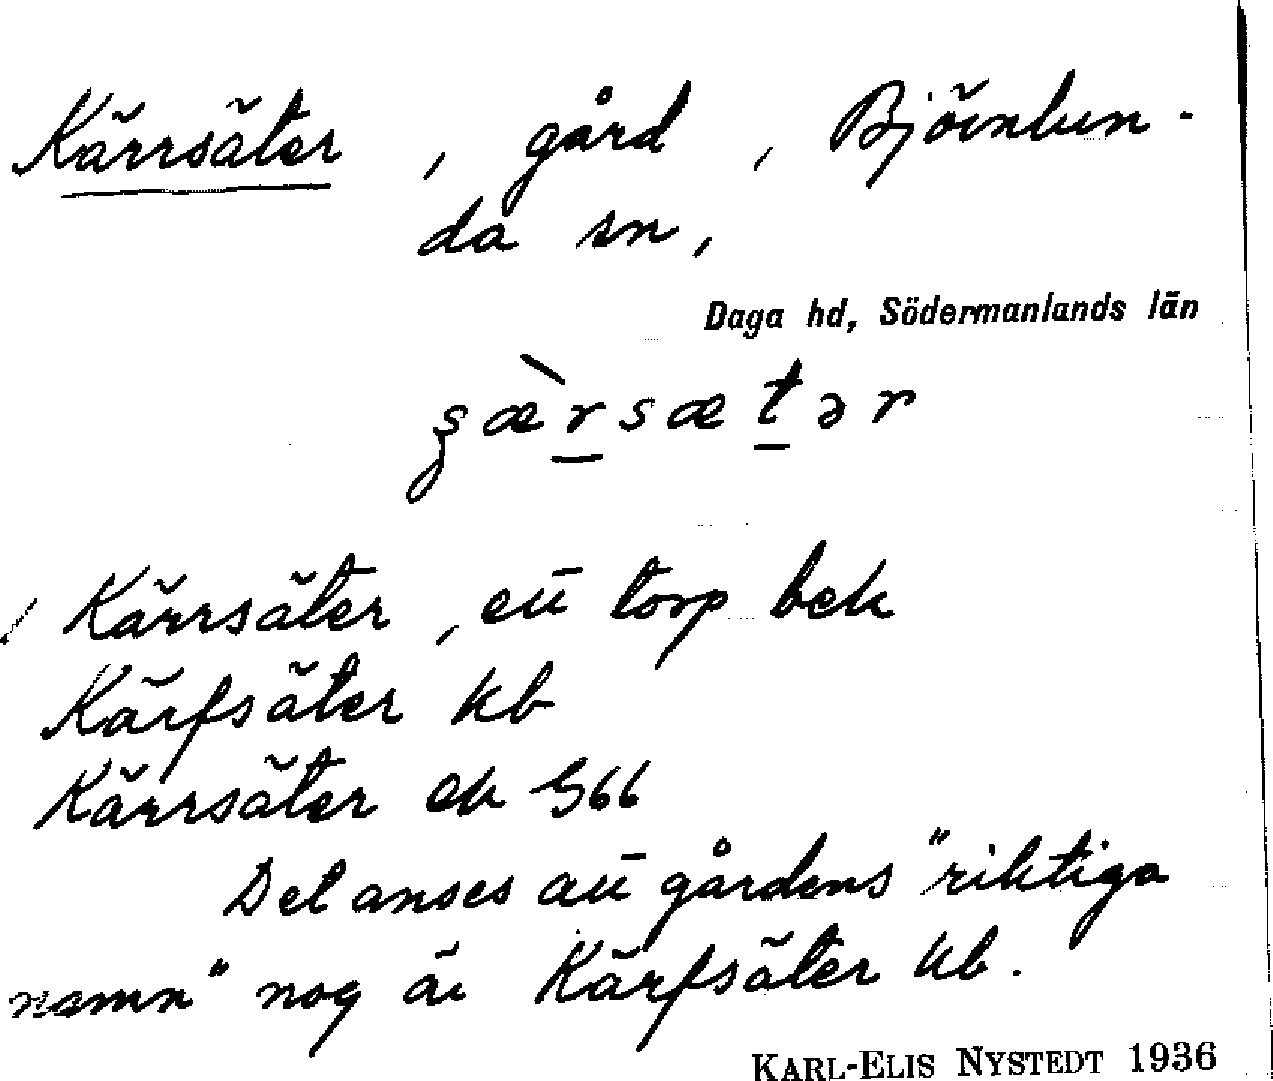 Kärrsäter, gård, Björnlun-
da sn,
Daga hd, Södermanlands län
Kärrsäter, ett torp bek
Kärfsäter kb
Kärrsäter ek S66
Det anses att gårdens "riktiga
namn" nog är Kärfsäter kb.
KARL-ELIS NYSTEDT 1936